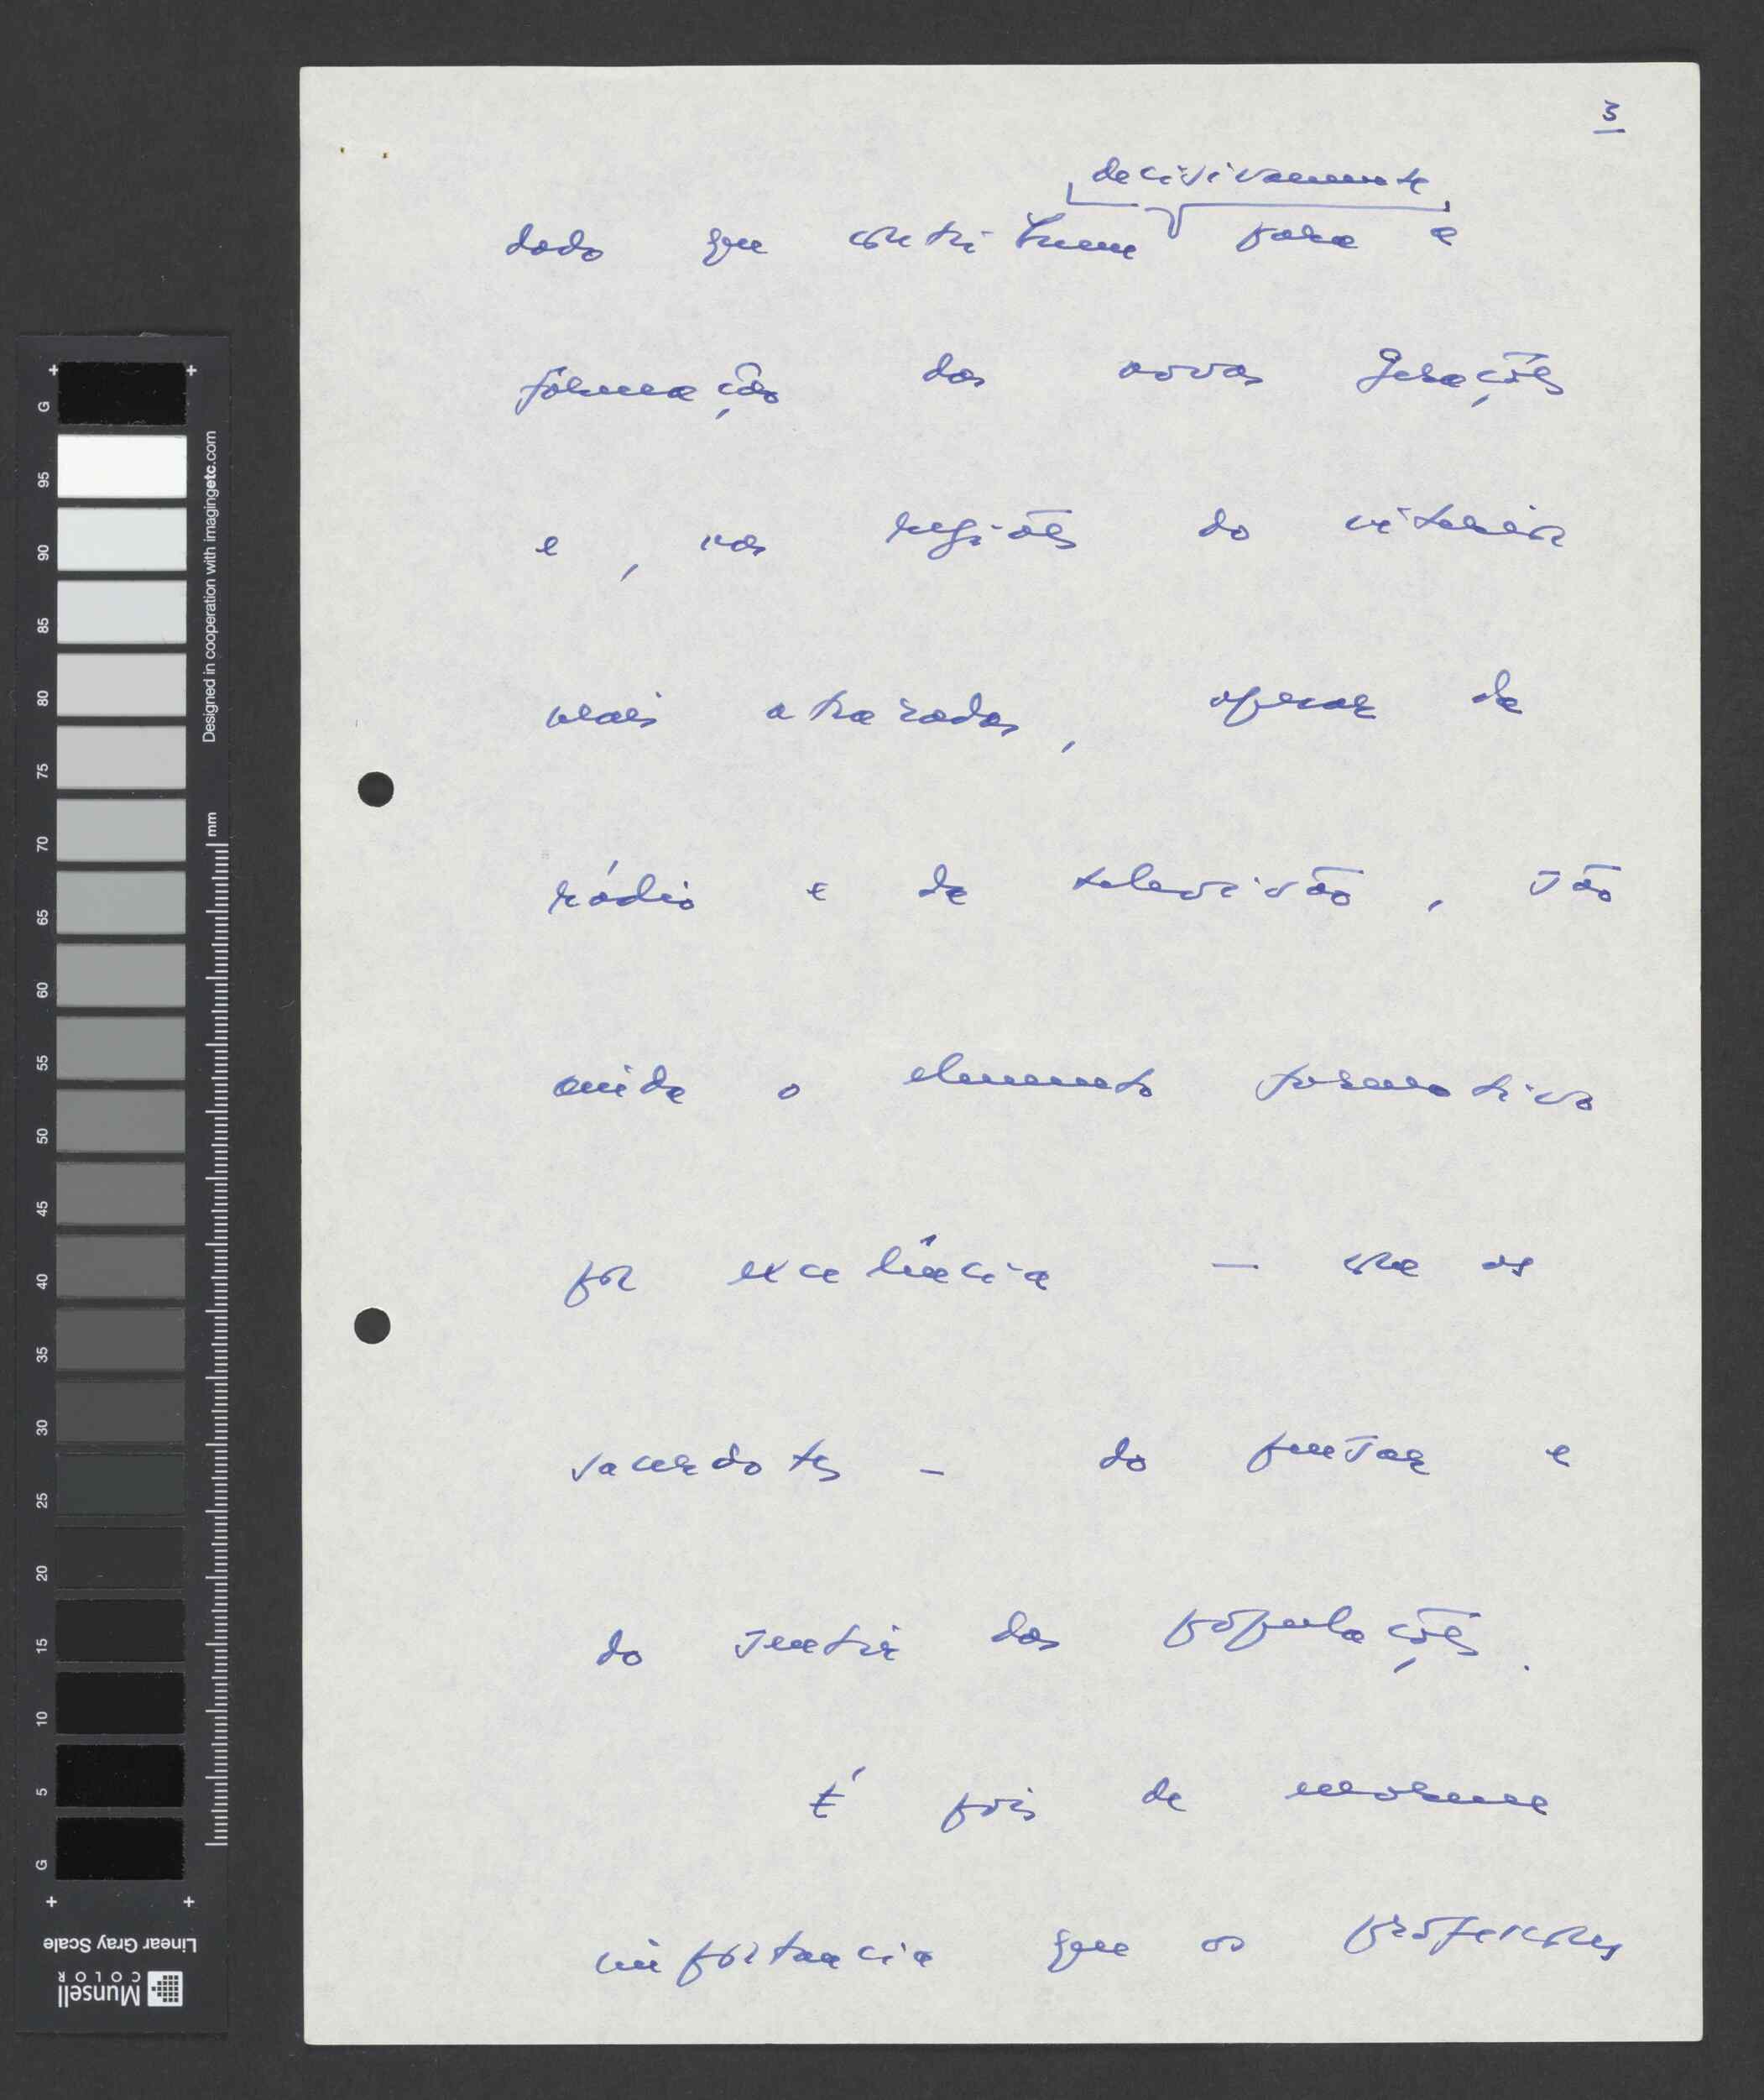 3
decisivamente
dado que contribuem para a
formação das novas gerações
e, nas regiões do interior
mais atrasadas, apesar da
rádio e da televisão, são
ainda o elemento formativo
por excelência — com os
sacerdotes - do pensar e
do sentir das populações.
É pois de enorme
importancia que os professores
G
95
90
85
80
75
70
65
60
55
50
45
40
35
30
25
20
15
10
5
G
Designed in cooperation with imagingetc.com
mm
Linear Gray Scale
Munsell
COLOR